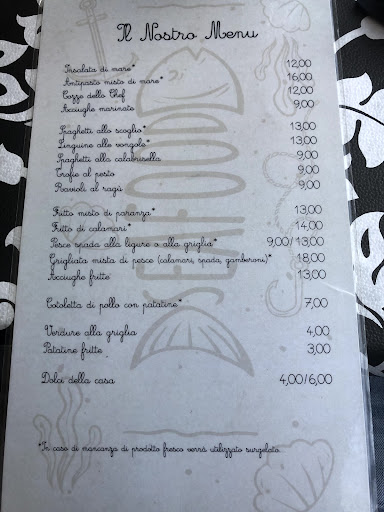 Il Nostro Menu
Insalata di mare* 12,00
Antipasto misto di mare* 16,00
Cozze dello Chef 12,00
Acciughe marinate 9,00
Spaghetti allo scoglio* 13,00
Linguine alle vongole* 13,00
Spaghetti alla calabrisella 9,00
Trofie al pesto 9,00
Ravioli al ragù 9,00
Fritto misto di paranza* 13,00
Fritto di calamari* 14,00
Pesce spada alla ligure o alla griglia* 9,00/13,00
Grigliata mista di pesce (calamari, spada, gamberoni)* 18,00
Acciughe fritte 13,00
Cotoletta di pollo con patatine* 7,00
Verdure alla griglia 4,00
Patatine fritte 3,00
Dolci della casa 4,00/6,00
*In caso di mancanza di prodotto fresco verrà utilizzato surgelato
SEAFOOD